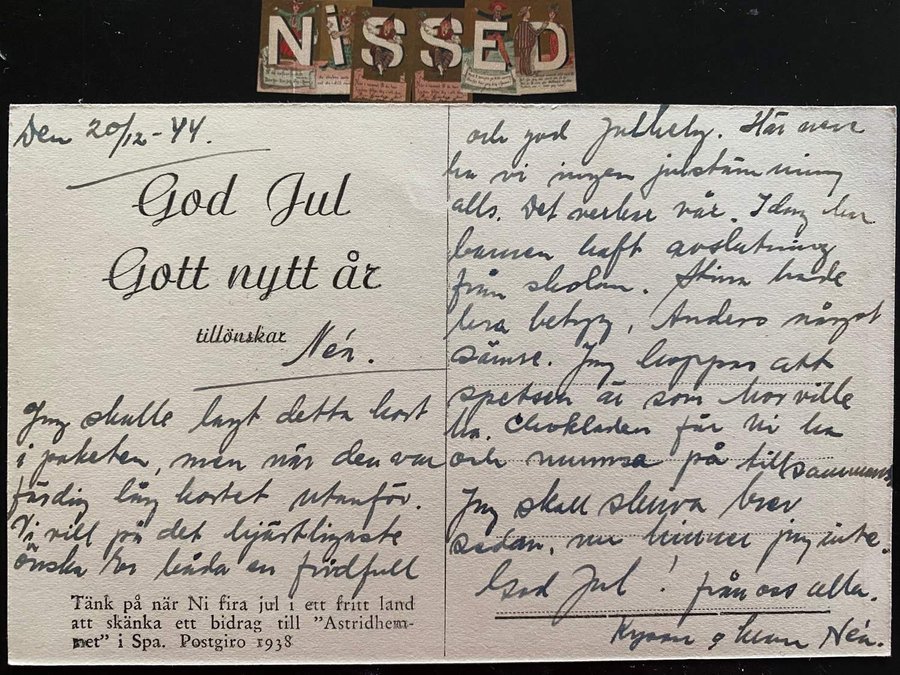 NISSED
Den 20/12-44.
God Jul
Gott nytt år
tillönskar Nén.
Jag skulle lagt detta kort
i paketen, men när den var
färdig låg kortet utanför.
Vi vill på det hjärtligaste
önska Er båda en fridfull
Tänk på när Ni fira jul i ett fritt land
att skänka ett bidrag till "Astridhem-
met" i Spa. Postgiro 1938
och god Julhelg. Här nere
ha vi ingen julstämning
alls. Det verkar vår. Idag har
barnen haft avslutning
från skolan. Stina hade
bra betyg, Anders något
sämre. Jag hoppas att
spetsen är som mor ville
ha. Chokladen får Ni ha
och mumsa på tillsammans
Jag skall skriva brev
sedan, nu hinner jag inte.
God Jul! från oss alla.
Kyssar Nén.